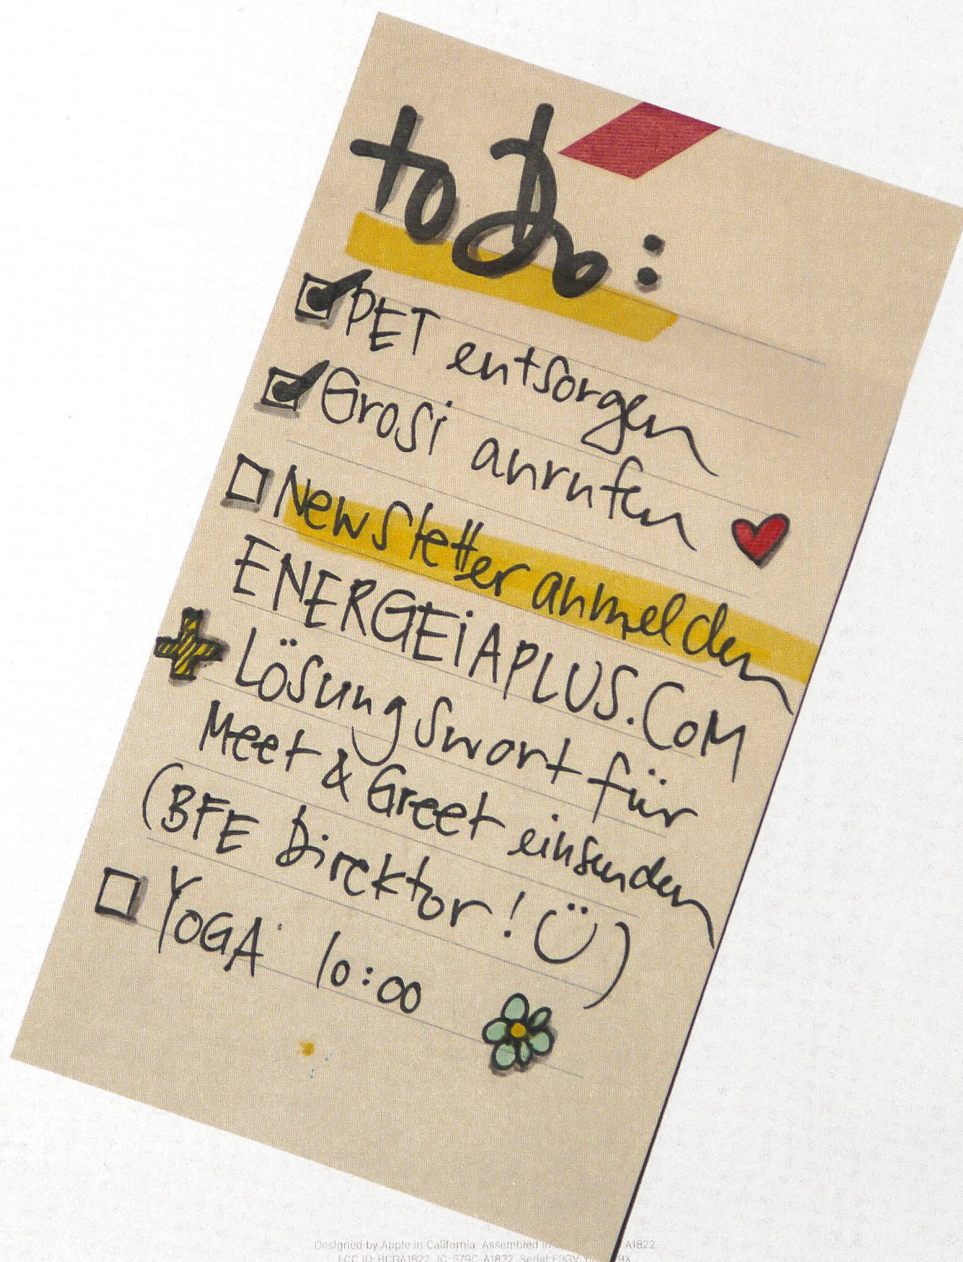 to do:
PET entsorgen
Grosi anrufen
Newsletter anmelden
ENERGEiAPLUS.COM
Lösungswort für
Meet & Greet einsenden
(BFE Direktor! Ü)
YOGA 10:00
Designed by Apple in California Assembled in A1822
FCC ID: BCGA1822 IC: 579C-A1822 Serial: